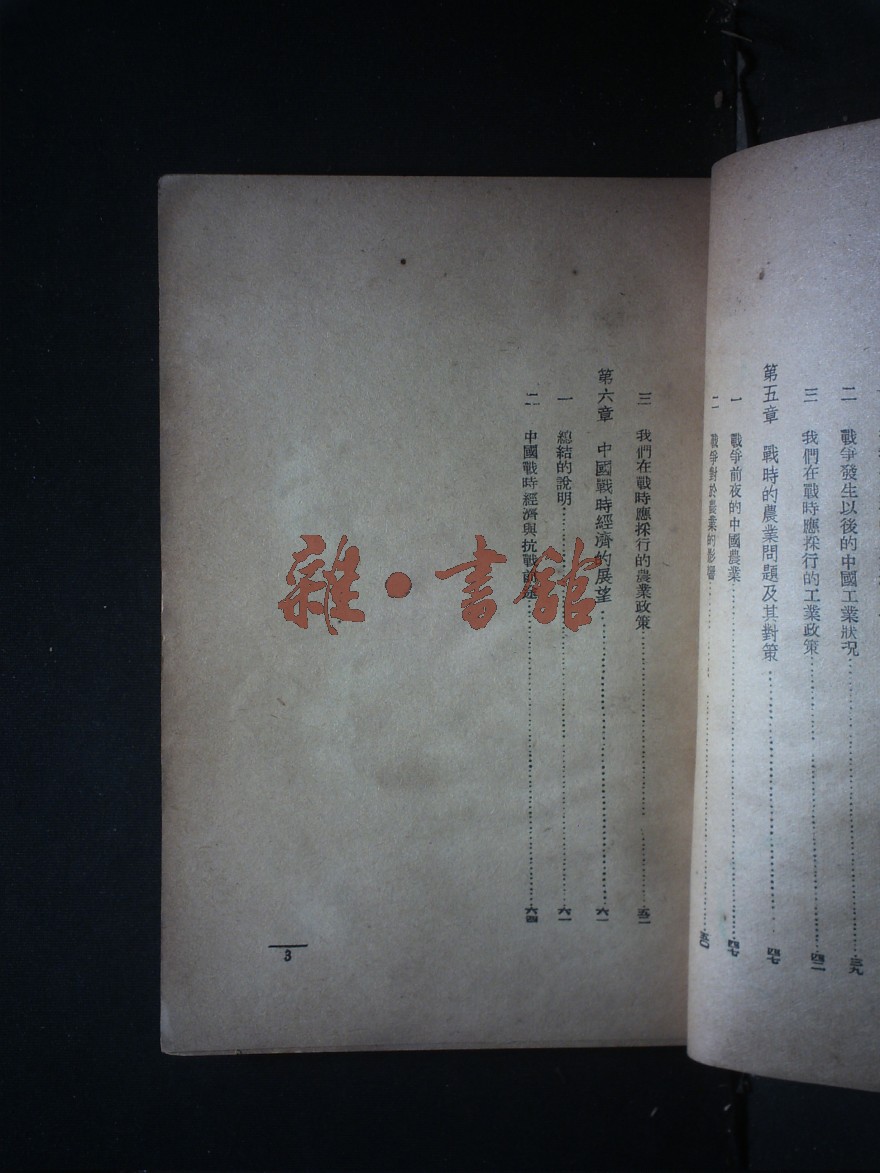 二 戰爭發生以後的中國工業狀况……三九
三 我們在戰時應採行的工業政策……四二
第五章 戰時的農業問題及其對策……四七
一 戰爭前夜的中國農業……四七
二 戰爭對於農業的影響……五〇
三 我們在戰時應採行的農業政策……五一
第六章 中國戰時經濟的展望……六一
一 總結的說明……六一
二 中國戰時經濟與抗戰前途……六四
3
雜·書館